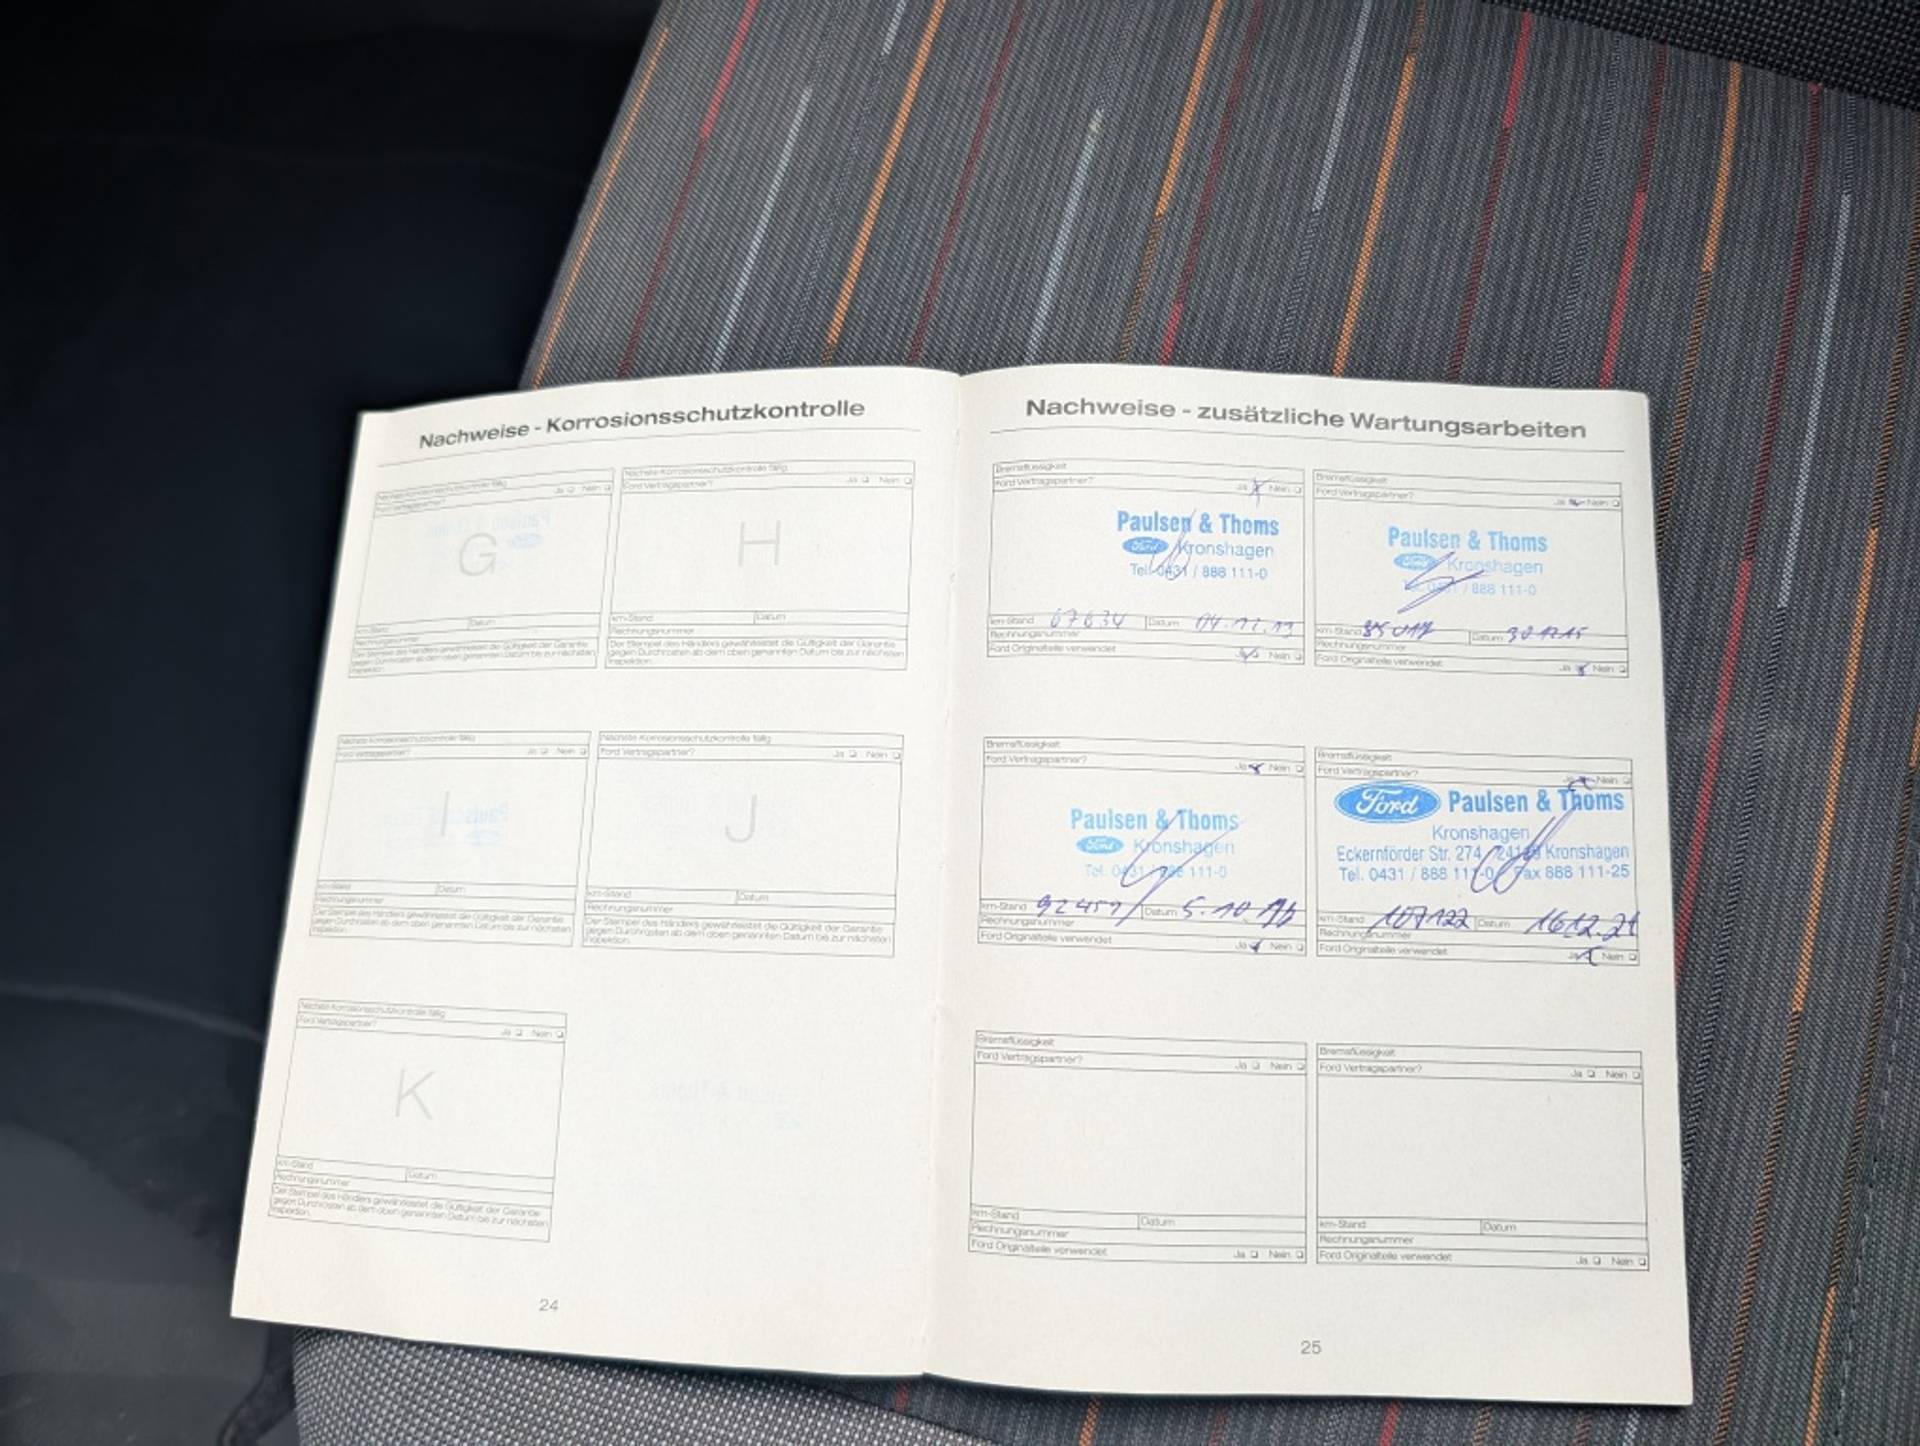 Nachweise - Korrosionsschutzkontrolle
Nächste Korrosionsschutzkontrolle fällig
Ford Vertragspartner? Ja Nein
G
km-Stand Datum
Rechnungsnummer
Der Stempel des Händlers gewährleistet die Gültigkeit der Garantie
gegen Durchrosten ab dem oben genannten Datum bis zur nächsten
Inspektion.
Nächste Korrosionsschutzkontrolle fällig
Ford Vertragspartner? Ja Nein
H
km-Stand Datum
Rechnungsnummer
Der Stempel des Händlers gewährleistet die Gültigkeit der Garantie
gegen Durchrosten ab dem oben genannten Datum bis zur nächsten
Inspektion.
Nächste Korrosionsschutzkontrolle fällig
Ford Vertragspartner? Ja Nein
I
km-Stand Datum
Rechnungsnummer
Der Stempel des Händlers gewährleistet die Gültigkeit der Garantie
gegen Durchrosten ab dem oben genannten Datum bis zur nächsten
Inspektion.
Nächste Korrosionsschutzkontrolle fällig
Ford Vertragspartner? Ja Nein
J
km-Stand Datum
Rechnungsnummer
Der Stempel des Händlers gewährleistet die Gültigkeit der Garantie
gegen Durchrosten ab dem oben genannten Datum bis zur nächsten
Inspektion.
Nächste Korrosionsschutzkontrolle fällig
Ford Vertragspartner? Ja Nein
K
km-Stand Datum
Rechnungsnummer
Der Stempel des Händlers gewährleistet die Gültigkeit der Garantie
gegen Durchrosten ab dem oben genannten Datum bis zur nächsten
Inspektion.
24
Nachweise - zusätzliche Wartungsarbeiten
Bremsflüssigkeit
Ford Vertragspartner? Ja Nein
Paulsen & Thoms
Ford Kronshagen
Tel. 0431 / 888 111-0
km-Stand 67634 Datum 04.12.13
Rechnungsnummer
Ford Originalteile verwendet Ja Nein
Bremsflüssigkeit
Ford Vertragspartner? Ja Nein
Paulsen & Thoms
Ford Kronshagen
Tel. 0431 / 888 111-0
km-Stand 85017 Datum
Rechnungsnummer
Ford Originalteile verwendet Ja Nein
Bremsflüssigkeit
Ford Vertragspartner? Ja Nein
Paulsen & Thoms
Ford Kronshagen
Tel. 0431 / 888 111-0
km-Stand 92459 Datum 5.10
Rechnungsnummer
Ford Originalteile verwendet Ja Nein
Bremsflüssigkeit
Ford Vertragspartner? Ja Nein
Ford Paulsen & Thoms
Kronshagen
Eckernförder Str. 274 24119 Kronshagen
Tel. 0431 / 888 111-0 Fax 888 111-25
km-Stand 107122 Datum 16.12.21
Rechnungsnummer
Ford Originalteile verwendet Ja Nein
Bremsflüssigkeit
Ford Vertragspartner? Ja Nein
km-Stand Datum
Rechnungsnummer
Ford Originalteile verwendet Ja Nein
Bremsflüssigkeit
Ford Vertragspartner? Ja Nein
km-Stand Datum
Rechnungsnummer
Ford Originalteile verwendet Ja Nein
25